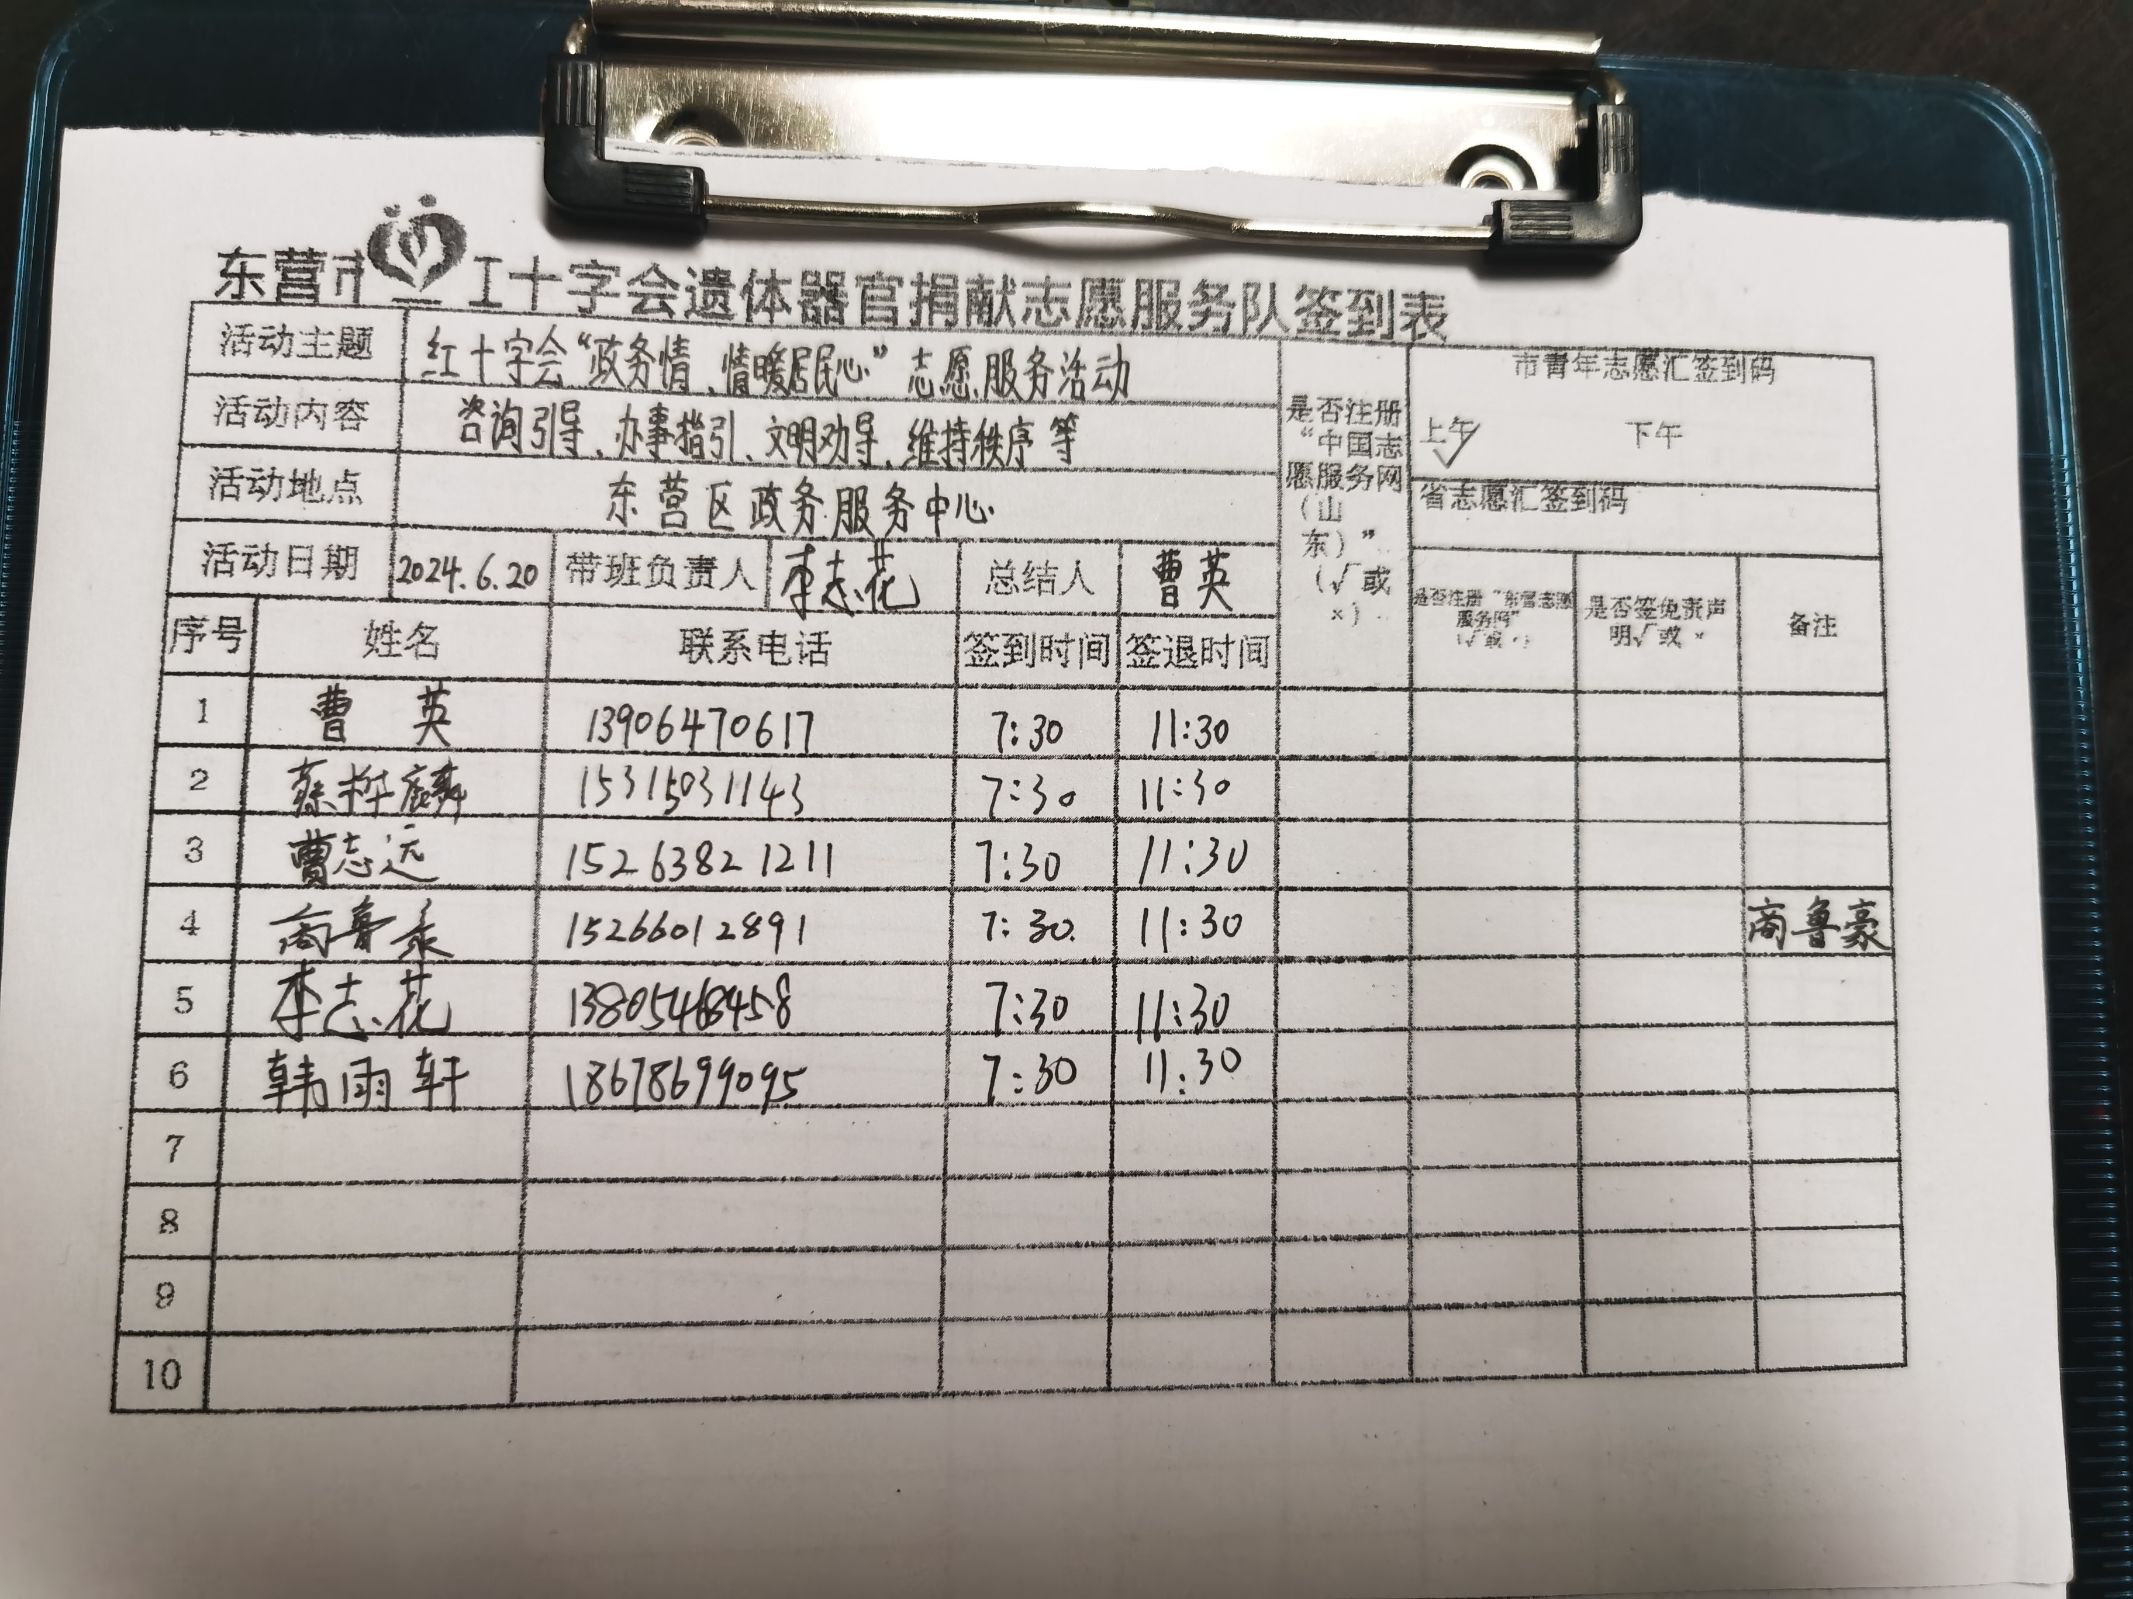 东营市 工十字会遗体器官捐献志愿服务队签到表
活动主题 红十字会“政务情、情暖居民心”志愿服务活动
活动内容 咨询引导、办事指引、文明劝导、维持秩序等
活动地点 东营区政务服务中心
活动日期 2024.6.20 带班负责人 李志花 总结人 曹英
是否注册
“中国志
愿服务网
(山
东)”
(√或
×)
市青年志愿汇签到码
上午√ 下午
省志愿汇签到码
是否注册“东营志愿
服务网”
(√或×)
是否签免责声
明√或×
备注
序号 姓名 联系电话 签到时间 签退时间
1 曹英 13906470617 7:30 11:30
2 桦麟 15315031143 7:30 11:30
3 曹志远 15263821211 7:30 11:30
4 商鲁豪 15266012891 7:30 11:30 商鲁豪
5 李志花 7:30 11:30
6 韩雨轩 18678699095 7:30 11:30
7
8
9
10